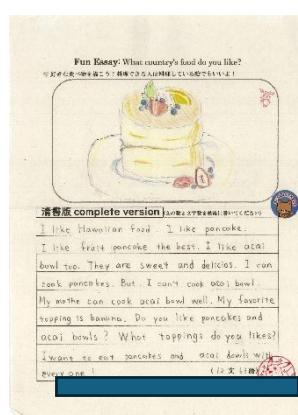 Fun Essay: What country's food do you like?
清書版 complete version
I like Hawaiian food. I like pancake.
I like fruit pancake the best. I like acai
bowl too. They are sweet and delicios. I can
cook pancakes. But, I can't cook acai bowl.
My mothe can cook acai bowl well. My favorite
topping is banana. Do you like pancakes and
acai bowls? What toppings do you likes?
I want to eat pancakes and acai bowls with
every one!